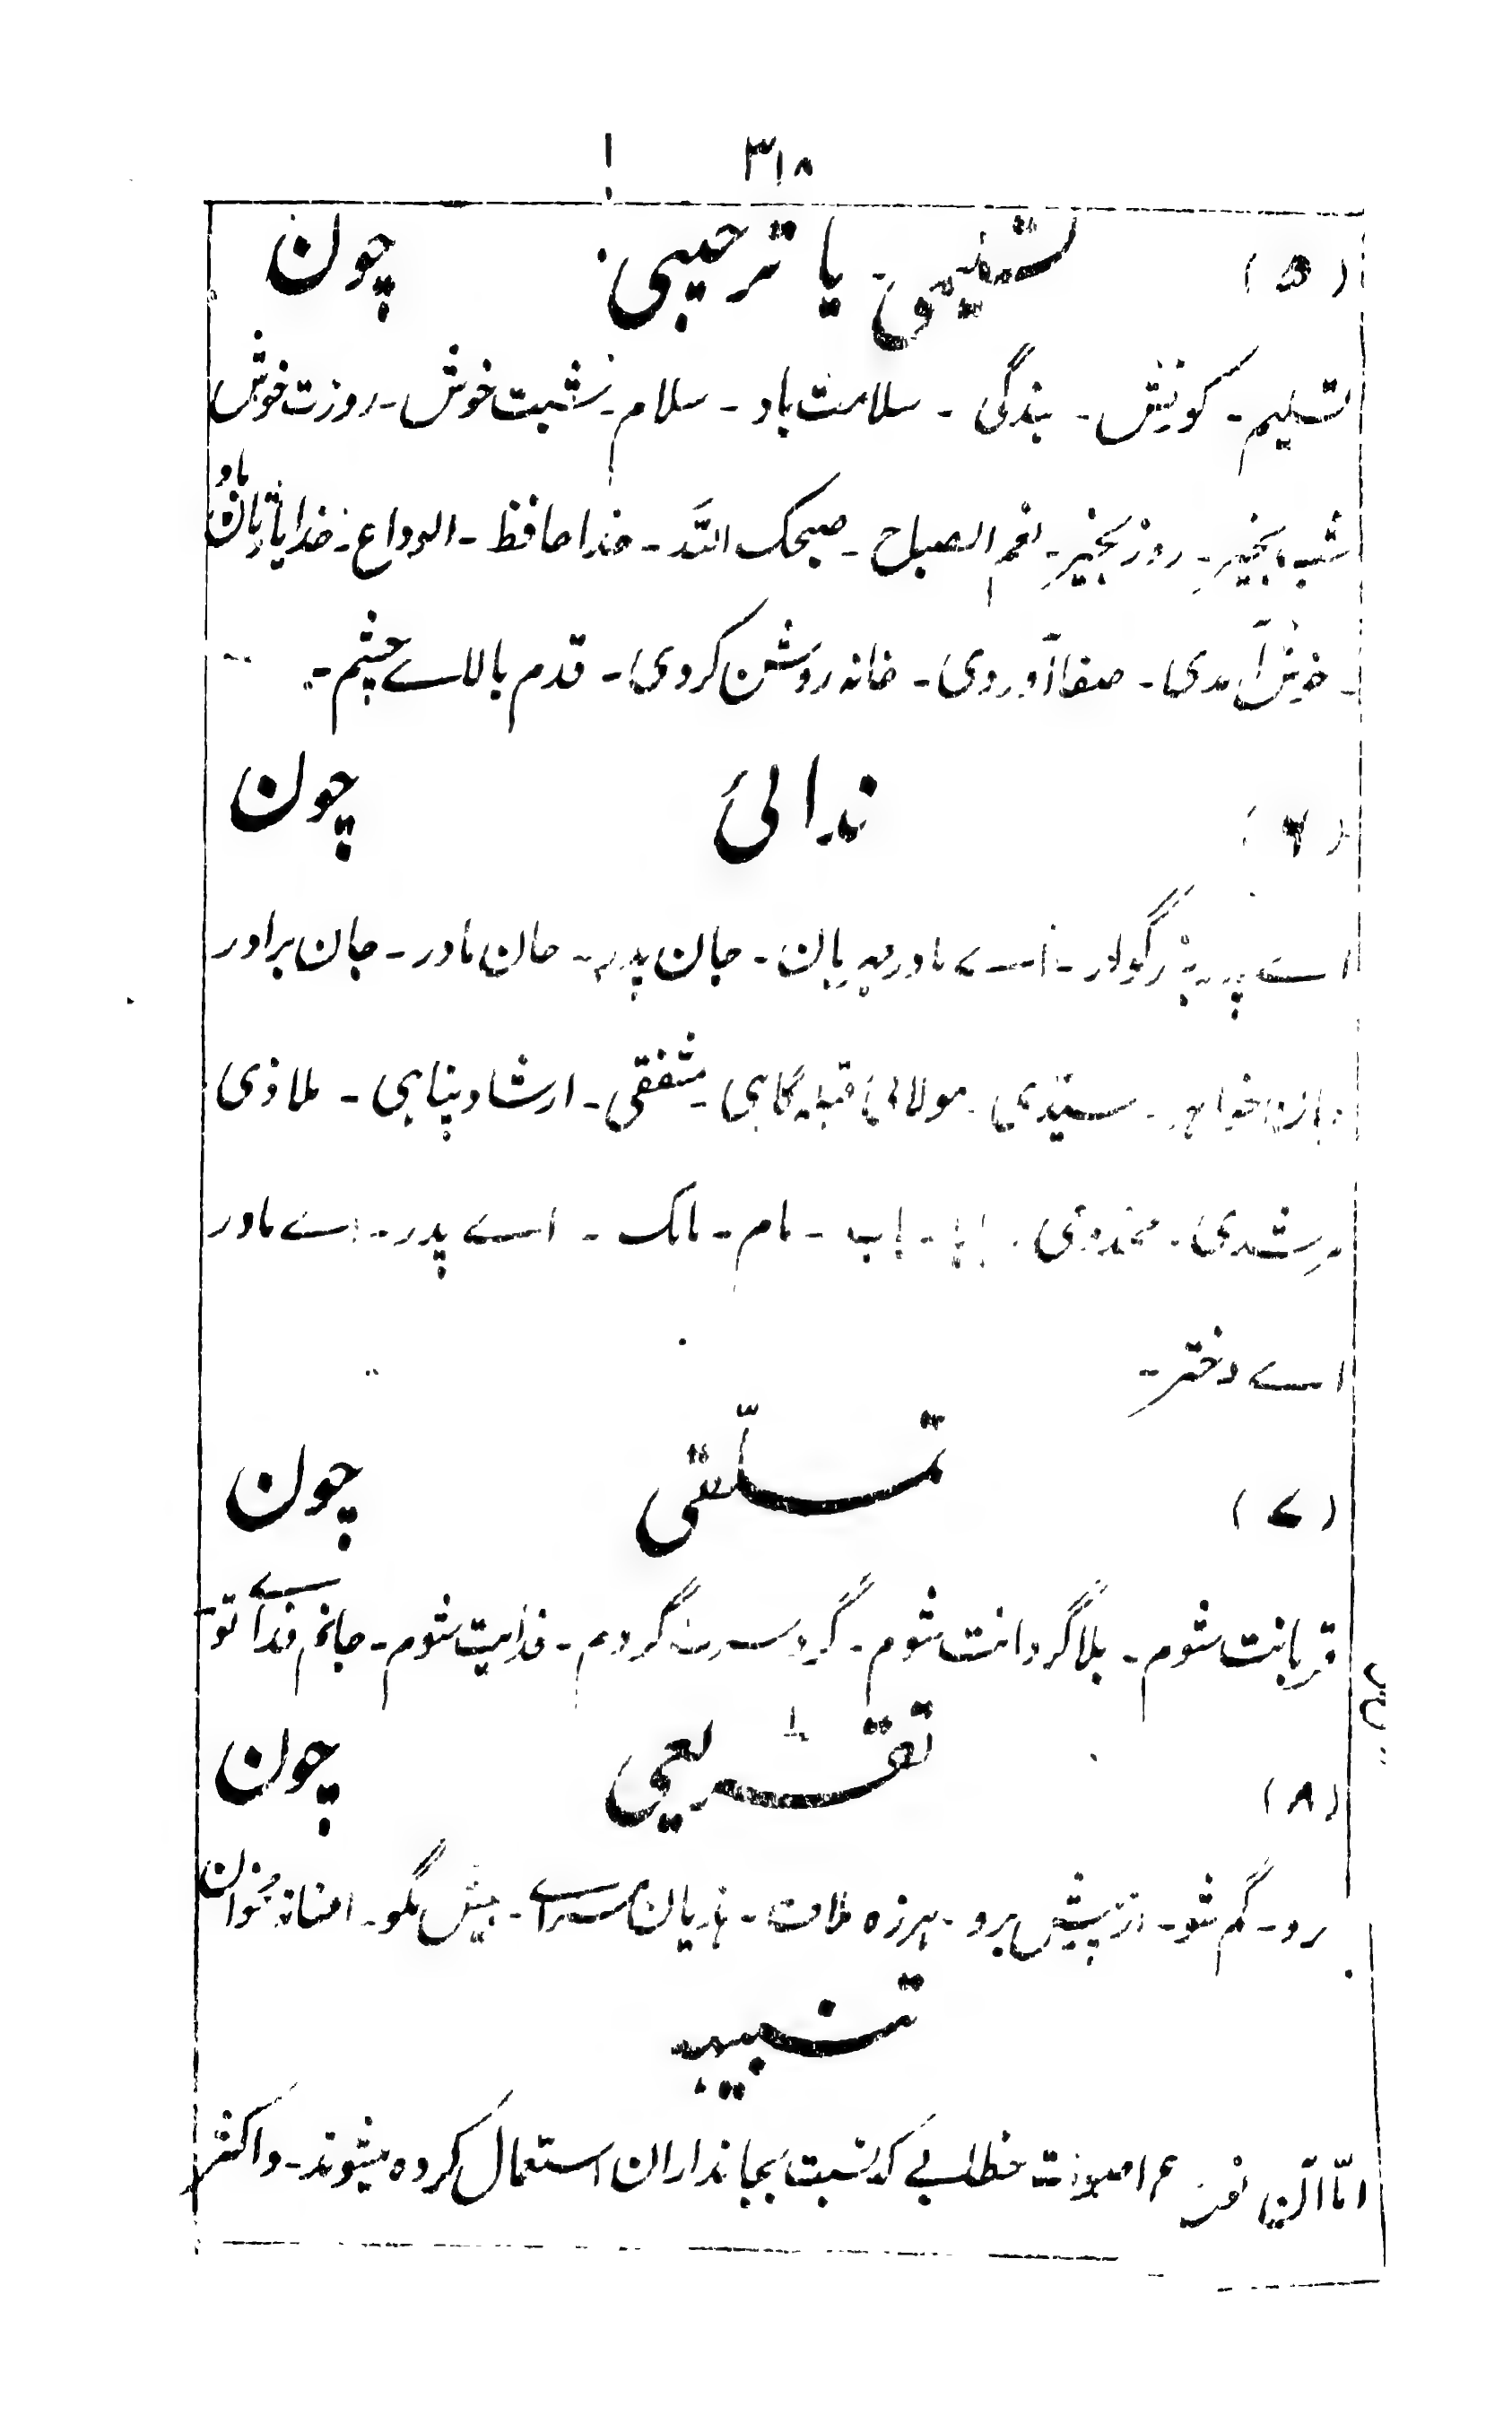 ۳۱۸
(۵) تسلیمی یا ترحیبی چون
تسلیم۔ کورنش۔ بندگی۔ سلامت باد۔ سلام۔ شبت خوش۔ روزت خوش
شب بخیر۔ روز بخیر۔ نعم الصباح۔ صبحک اللہ۔ خدا حافظ۔ الوداع۔ خدا یار باد
خوش آمدی۔ صفا آوردی۔ خانہ روشن کردی۔ قدم بالاے چشم۔
(۶) ندائی چون
اے پدر بزرگوار۔ اے مادر مہربان۔ جان پدر۔ جان مادر۔ جان برادر
جان خواہر۔ سیّدی۔ مولائی قبلہ گاہی۔ مشفقی۔ ارشاد پناہی۔ ملاذی
مرشدی۔ مخدومی۔ بابا۔ باب۔ مام۔ مامک۔ اے پدر۔ اے مادر
اے دختر۔
(۷) تملّقی چون
قربانت شوم۔ بلاگردانت شوم۔ گرد سرت گردم۔ فدایت شوم۔ جانم فداے تو
(۸) تقریعی چون
برو۔ گم شو۔ از پیش برو۔ ہرزہ ملاف۔ ہذیان مسراے۔ بیش مگو۔ افسانہ مخوان
تنبیہ
امّا آن اصوات خطابی کہ نسبت بجانداران استعمال کردہ میشوند۔ و اکثر